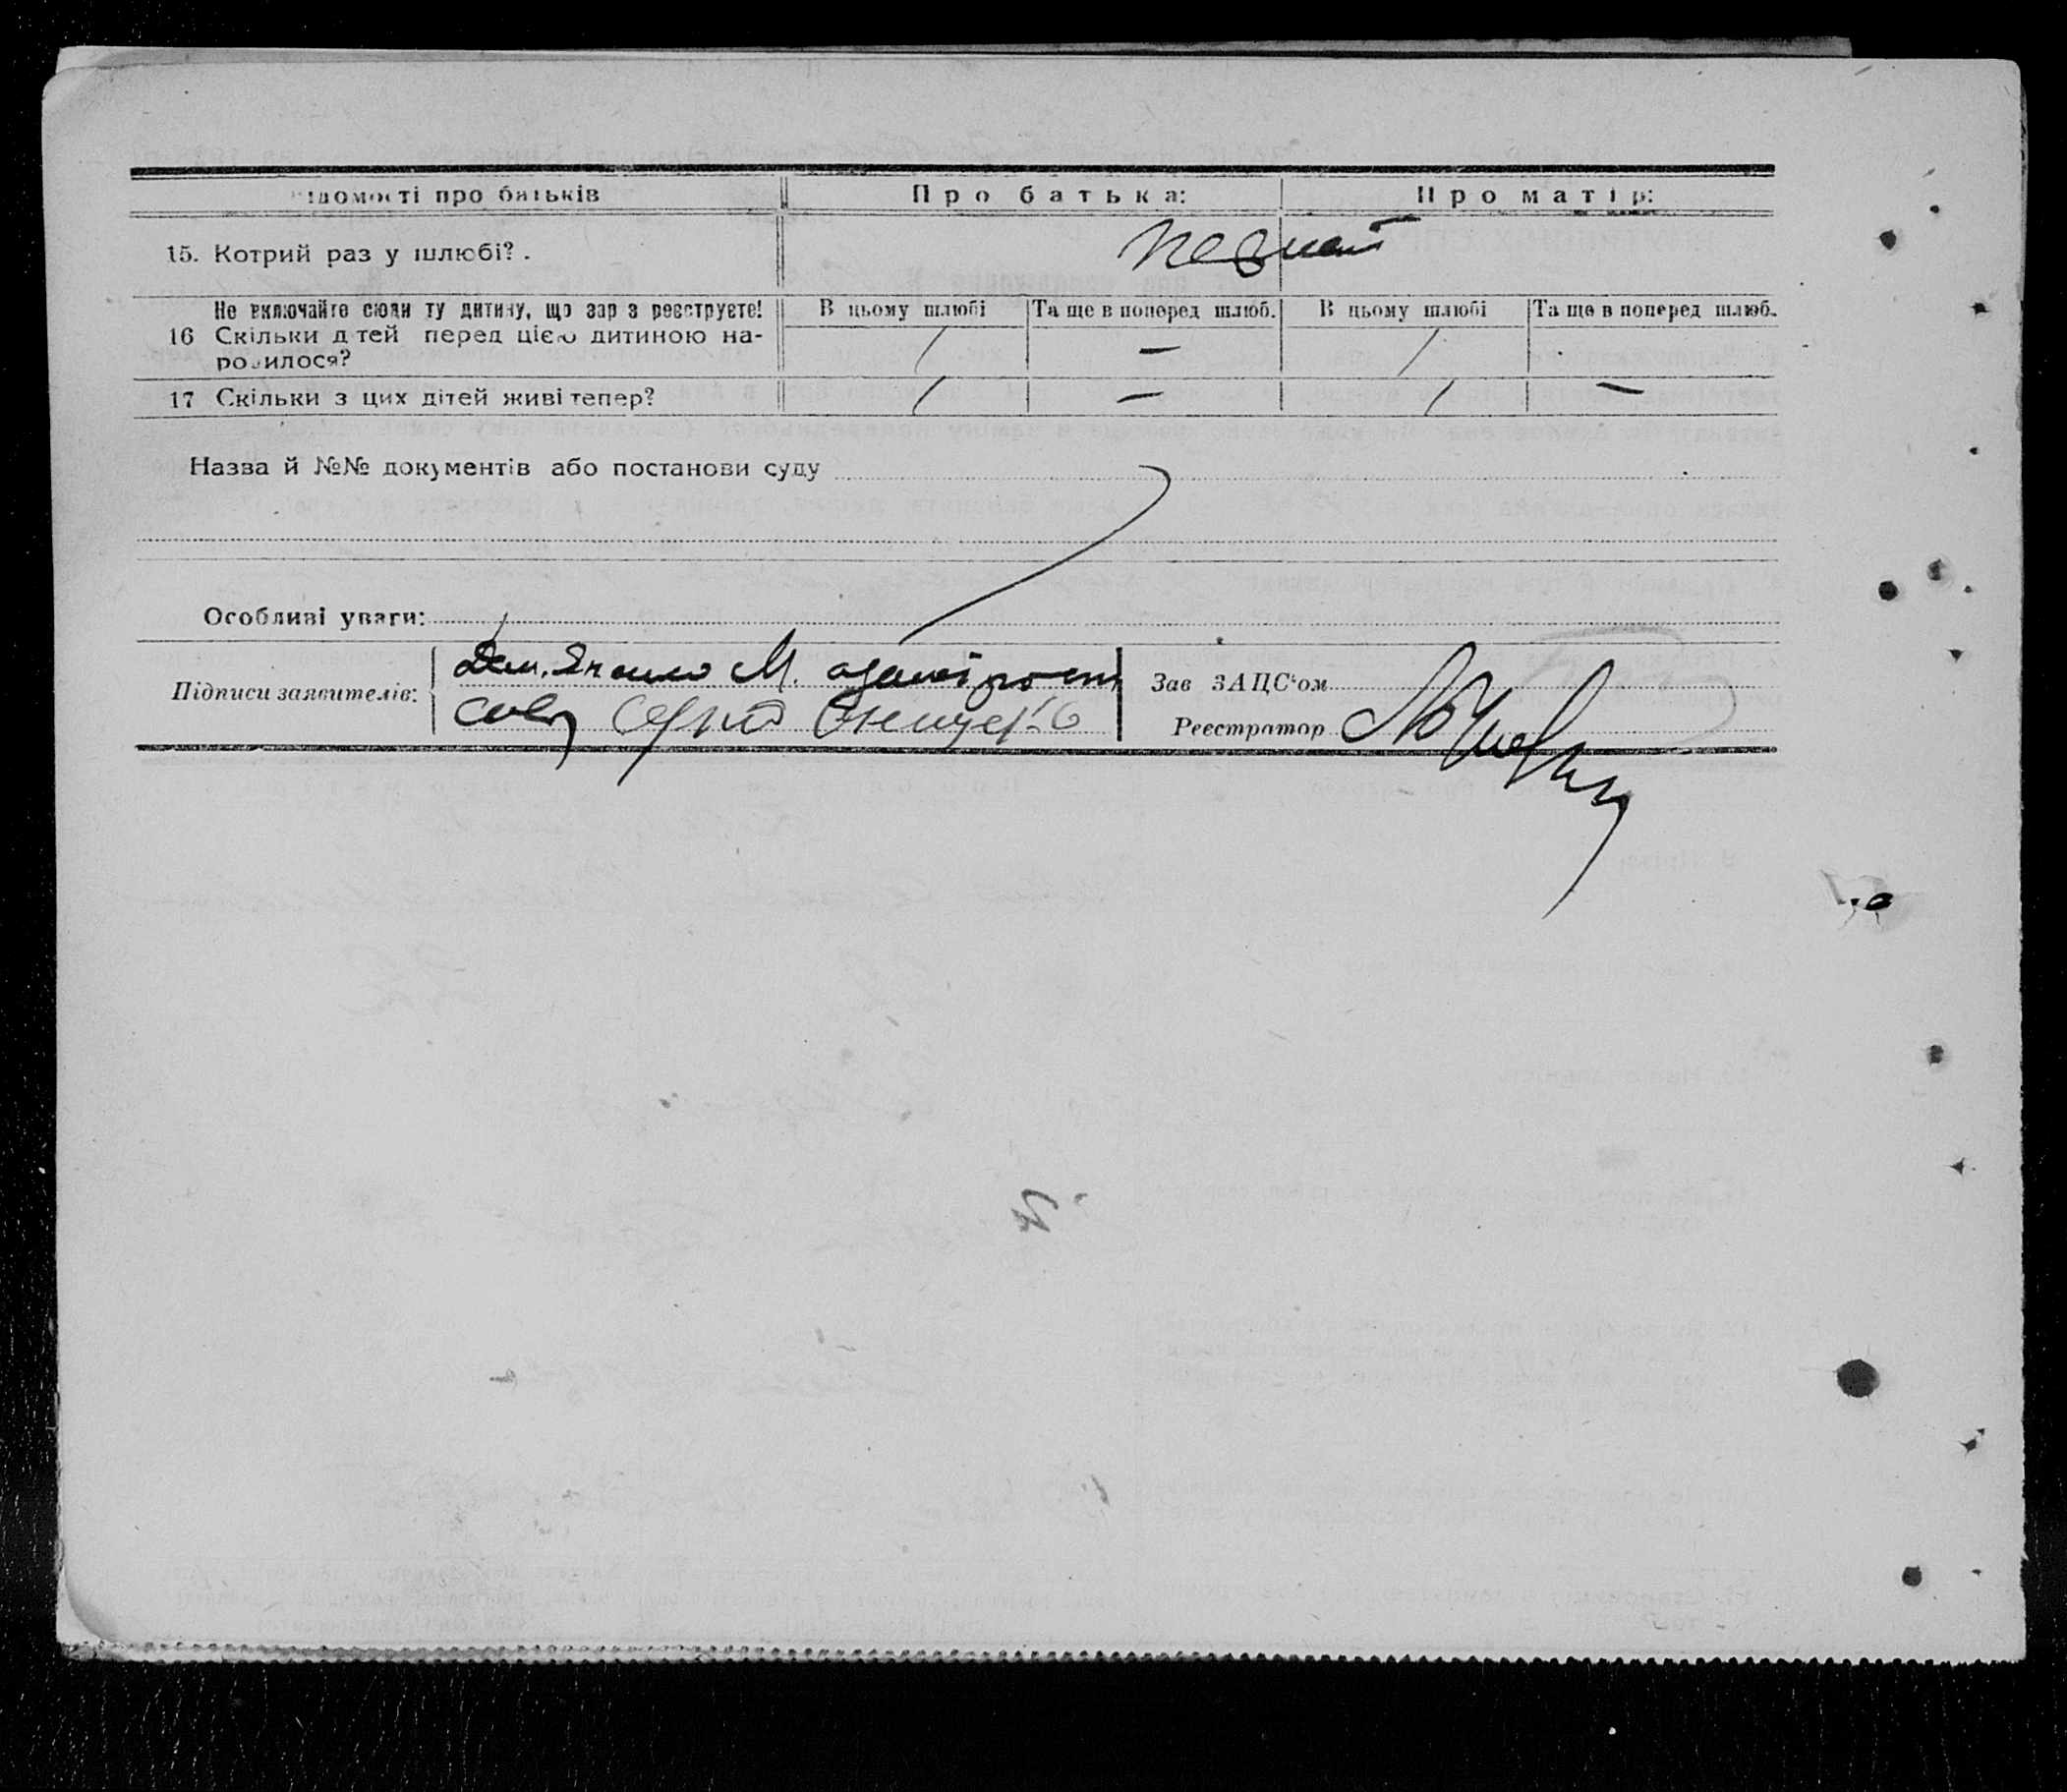 ідомості про батьків Про батька: Про матір:
15. Котрий раз у шлюбі?.
Не включайте сюди ту дитину, що зар з реєструєте! В цьому шлюбі Та ще в поперед шлюб. В цьому шлюбі Та ще в поперед шлюб.
16 Скільки дітей перед цією дитиною на-
родилося? / — /
17 Скільки з цих дітей живі тепер? / — / —
Назва й №№ документів або постанови суду
Особливі уваги:
Підписи заявителів: М.
Зав ЗАЦС'ом
Реєстратор